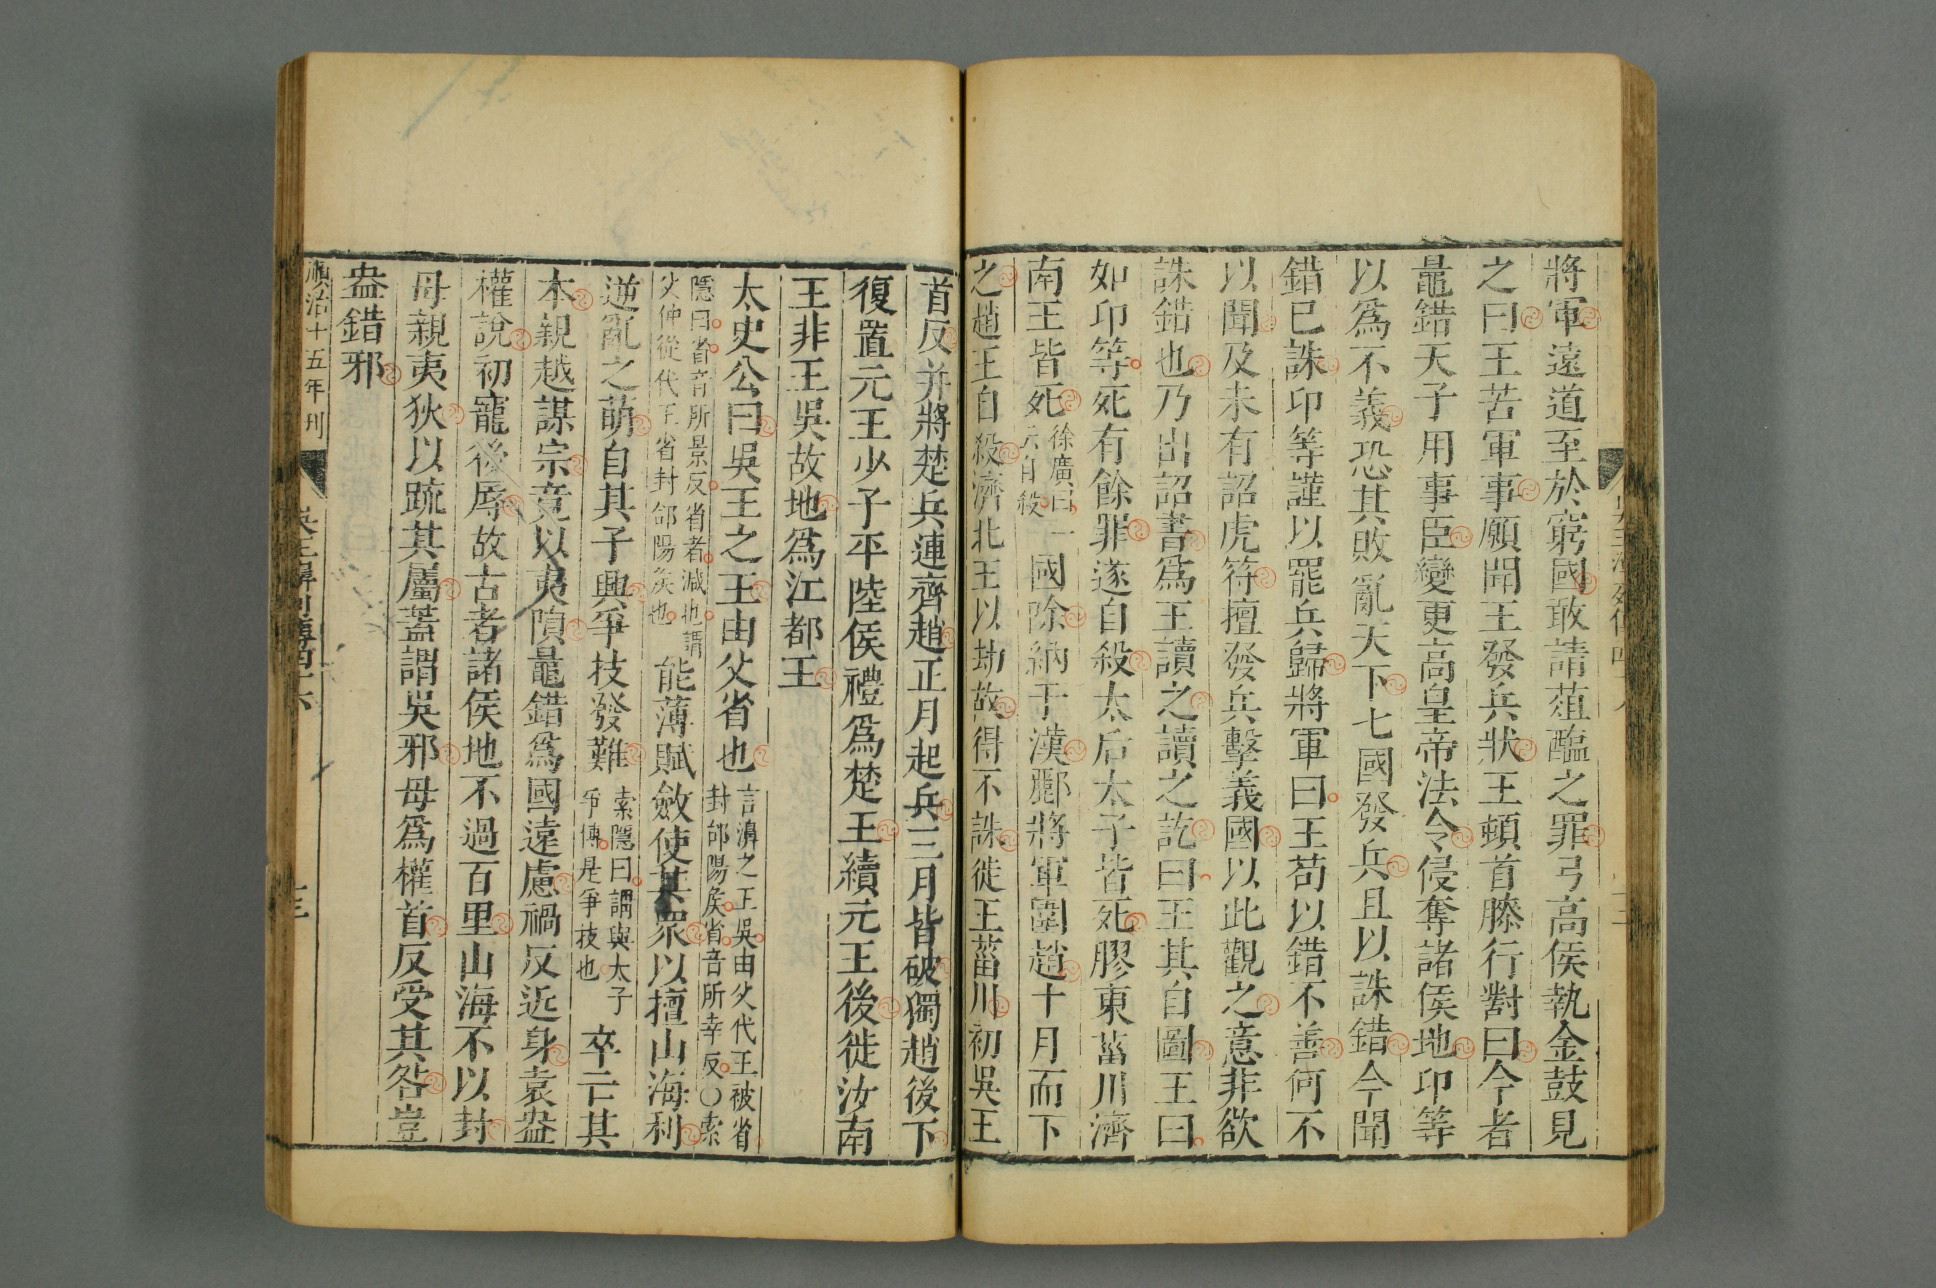 將軍遠道至於窮國敢請葅醢之罪弓高侯執金鼓見
之曰王苦軍事願聞王發兵狀王頓首膝行對曰今者
鼂錯天子用事臣變更高皇帝法令侵奪諸侯地卬等
以爲不義恐其敗亂天下七國發兵且以誅錯今聞
錯已誅卬等謹以罷兵歸將軍曰王苟以錯不善何不
以聞及未有詔虎符擅發兵擊義國以此觀之意非欲
誅錯也乃出詔書爲王讀之讀之訖曰王其自圖王曰
如卬等死有餘罪遂自殺太后太子皆死膠東菑川濟
南王皆死徐廣曰一云自殺國除納于漢酈將軍圍趙十月而下
之趙王自殺濟北王以劫故得不誅徙王菑川初吳王
首反并將楚兵連齊趙正月起兵三月皆破獨趙後下
復置元王少子平陸侯禮爲楚王續元王後徙汝南
王非王吳故地爲江都王
太史公曰吳王之王由父省也言濞之王吳由父代王被省封郃陽侯省音所幸反○索
隱曰省音所景反省者減也謂父仲從代王省封郃陽侯也能薄賦斂使其衆以擅山海利
逆亂之萌自其子興爭技發難索隱曰謂與太子爭博是爭技也卒亡其
本親越謀宗竟以夷隕鼂錯爲國遠慮禍反近身袁盎
權說初寵後辱故古者諸侯地不過百里山海不以封
毋親夷狄以疏其屬蓋謂吳邪毋爲權首反受其咎豈
盎錯邪
順治十五年刊
吳王濞列傳四十六
十三